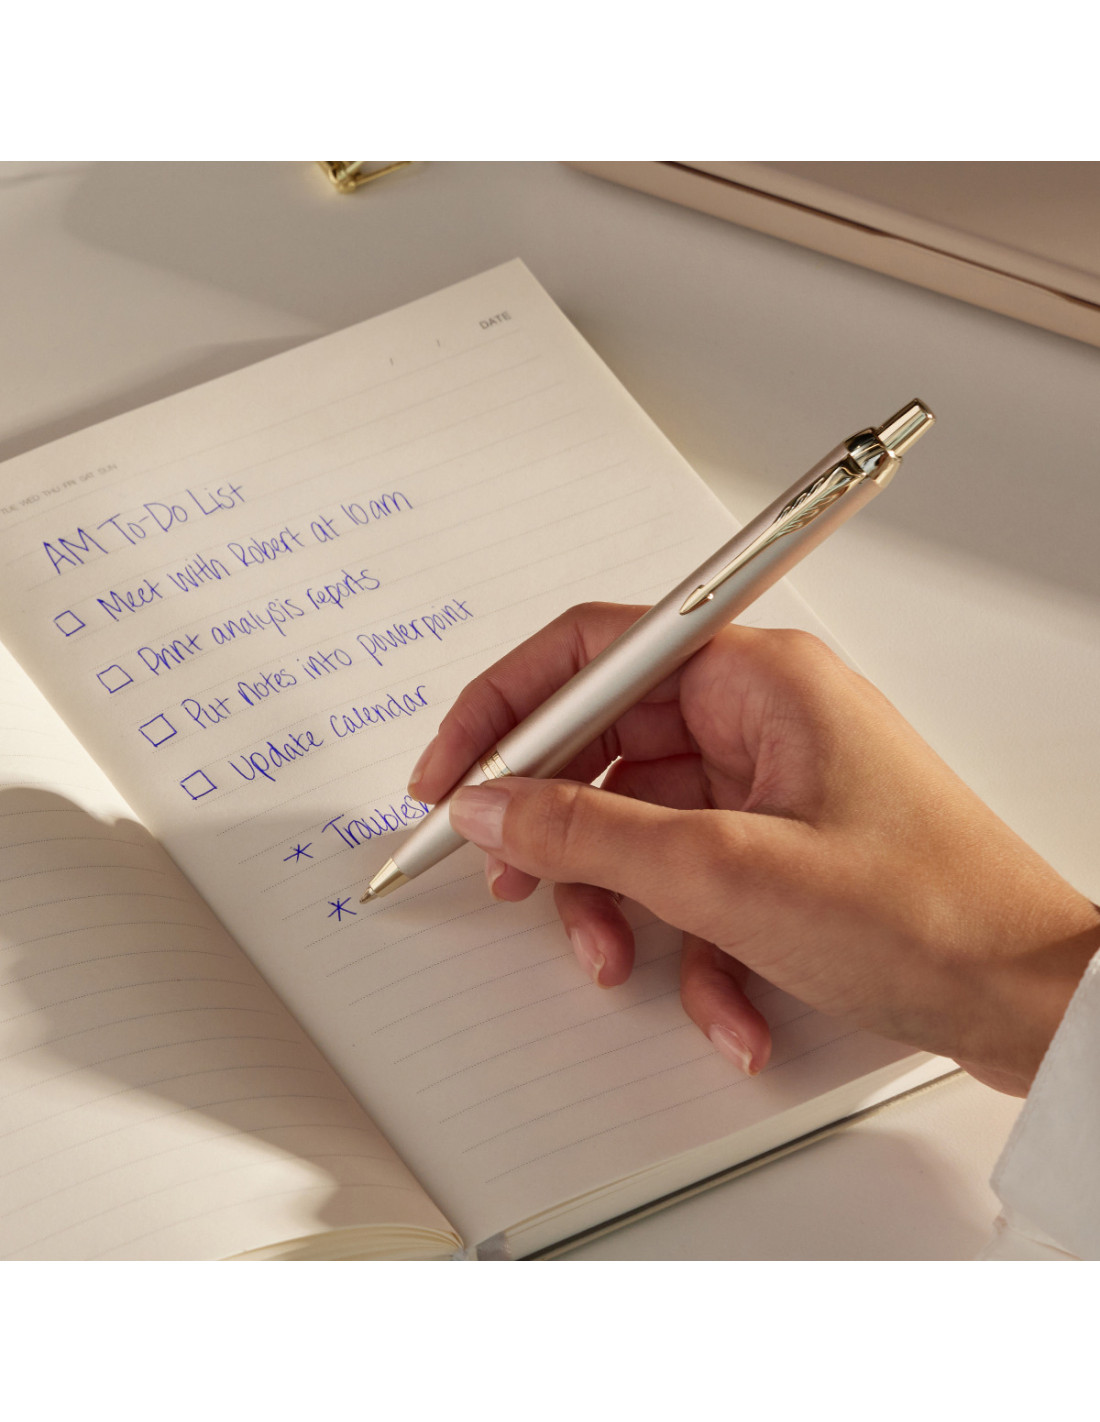 DATE
TUE WED THU FRI SAT SUN
AM To-Do List
Meet with Robert at 10am
Print analysis reports
Put notes into powerpoint
Update Calendar
* 
*